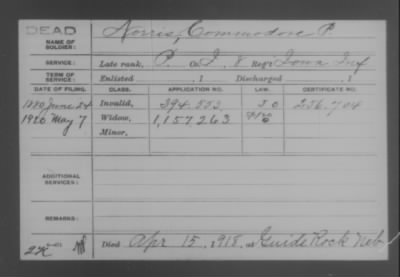 DEAD
NAME OF SOLDIER: Norris, Commodore P.
SERVICE: Late rank, P. Co. I, 8 Reg't Iowa Inf
TERM OF SERVICE: Enlisted , 1 Discharged , 1
DATE OF FILING. CLASS. APPLICATION NO. LAW. CERTIFICATE NO.
1880 June 24 Invalid, 394.552 J O 256.704
1920 May 7 Widow, 1,157263
Minor,
ADDITIONAL SERVICES:
REMARKS:
Died Apr 15, 1918, at Guide Rock Neb